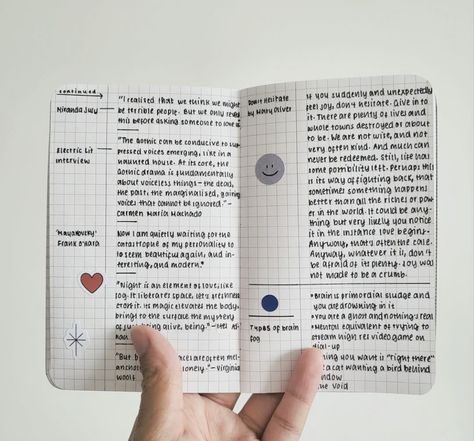 continued
Miranda July
"I realised that we think we might
be terrible people. But we only reveal
this before asking someone to love us.
Electric Lit
interview
"The Gothic can be conducive to sup-
pressed voices emerging, like in a
haunted house. At its core, the
Gothic drama is fundamentally
about voiceless things—the dead,
the past, the marginalised, going
voices that cannot be ignored."—
Carmen Maria Machado
'Mayakovsky'
Frank O'Hara
Now I am quietly waiting for the
catastrophe of my personality to
to seem beautiful again, and in-
teresting, and modern."
"Night is an element of love, like
fog. It liberates space, lets
crash it. Its magic elevates the body,
brings to the surface the mystery
of just being alive, being."—
"But
woolf
Don't Hesitate
by Mary Oliver
If you suddenly and unexpectedly
feel joy, don't hesitate. Give in to
it. There are plenty of lives and
whole towns destroyed or about
to be. We are not wise, and not
very often kind. And much can
never be redeemed. Still, life has
some possibility left. Perhaps this
is its way of fighting back, that
sometimes something happens
better than all the riches or pow
er in the world. It could be any-
thing but very likely you notice
it in the instance love begins.
Anyway, that's often the case.
Anyway, whatever it is, don't
be afraid of its plenty. Joy was
not made to be a crumb.
Types of brain
fog
•Brain is primordial sludge and
you are drowning in it
•You are a ghost and nothing is real
•Mental equivalent of trying to
stream high res video game on
dial-up
thing you want is "right there"
a cat wanting a bird behind
window
The void